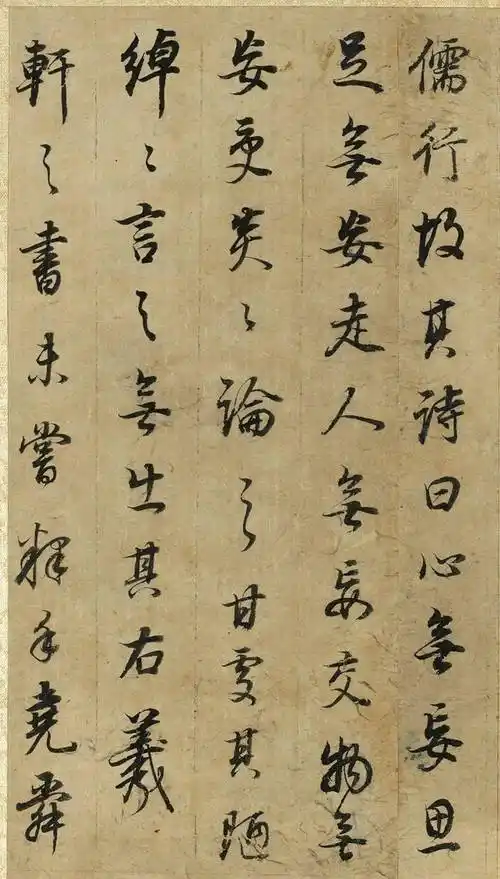 儒行故其詩曰心無妄思
足無妄走人無妄交物無
妄受炎〻論之甘處其陋
綽〻言之無出其右羲
軒之書未嘗釋手堯舜